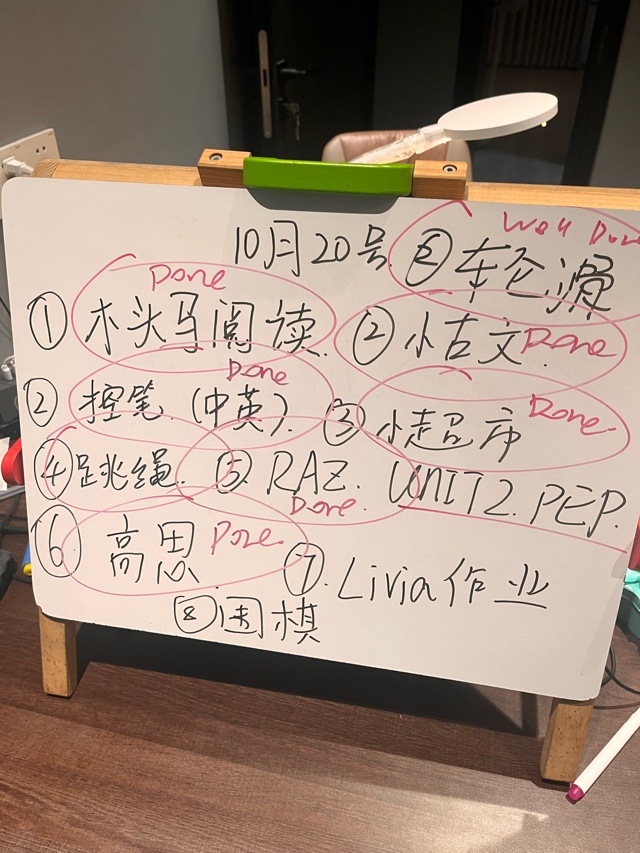 Well Done
10月20号 ② 轮滑
Done
① 木头马阅读. ② 小古文. Done
Done
② 控笔. (中英). ③ 小超市 Done.
④ 跳绳. ⑤. RAZ. UNIT2. PEP.
Done.
⑥ 高思 Done. ⑦. Livia作业
⑧ 围棋